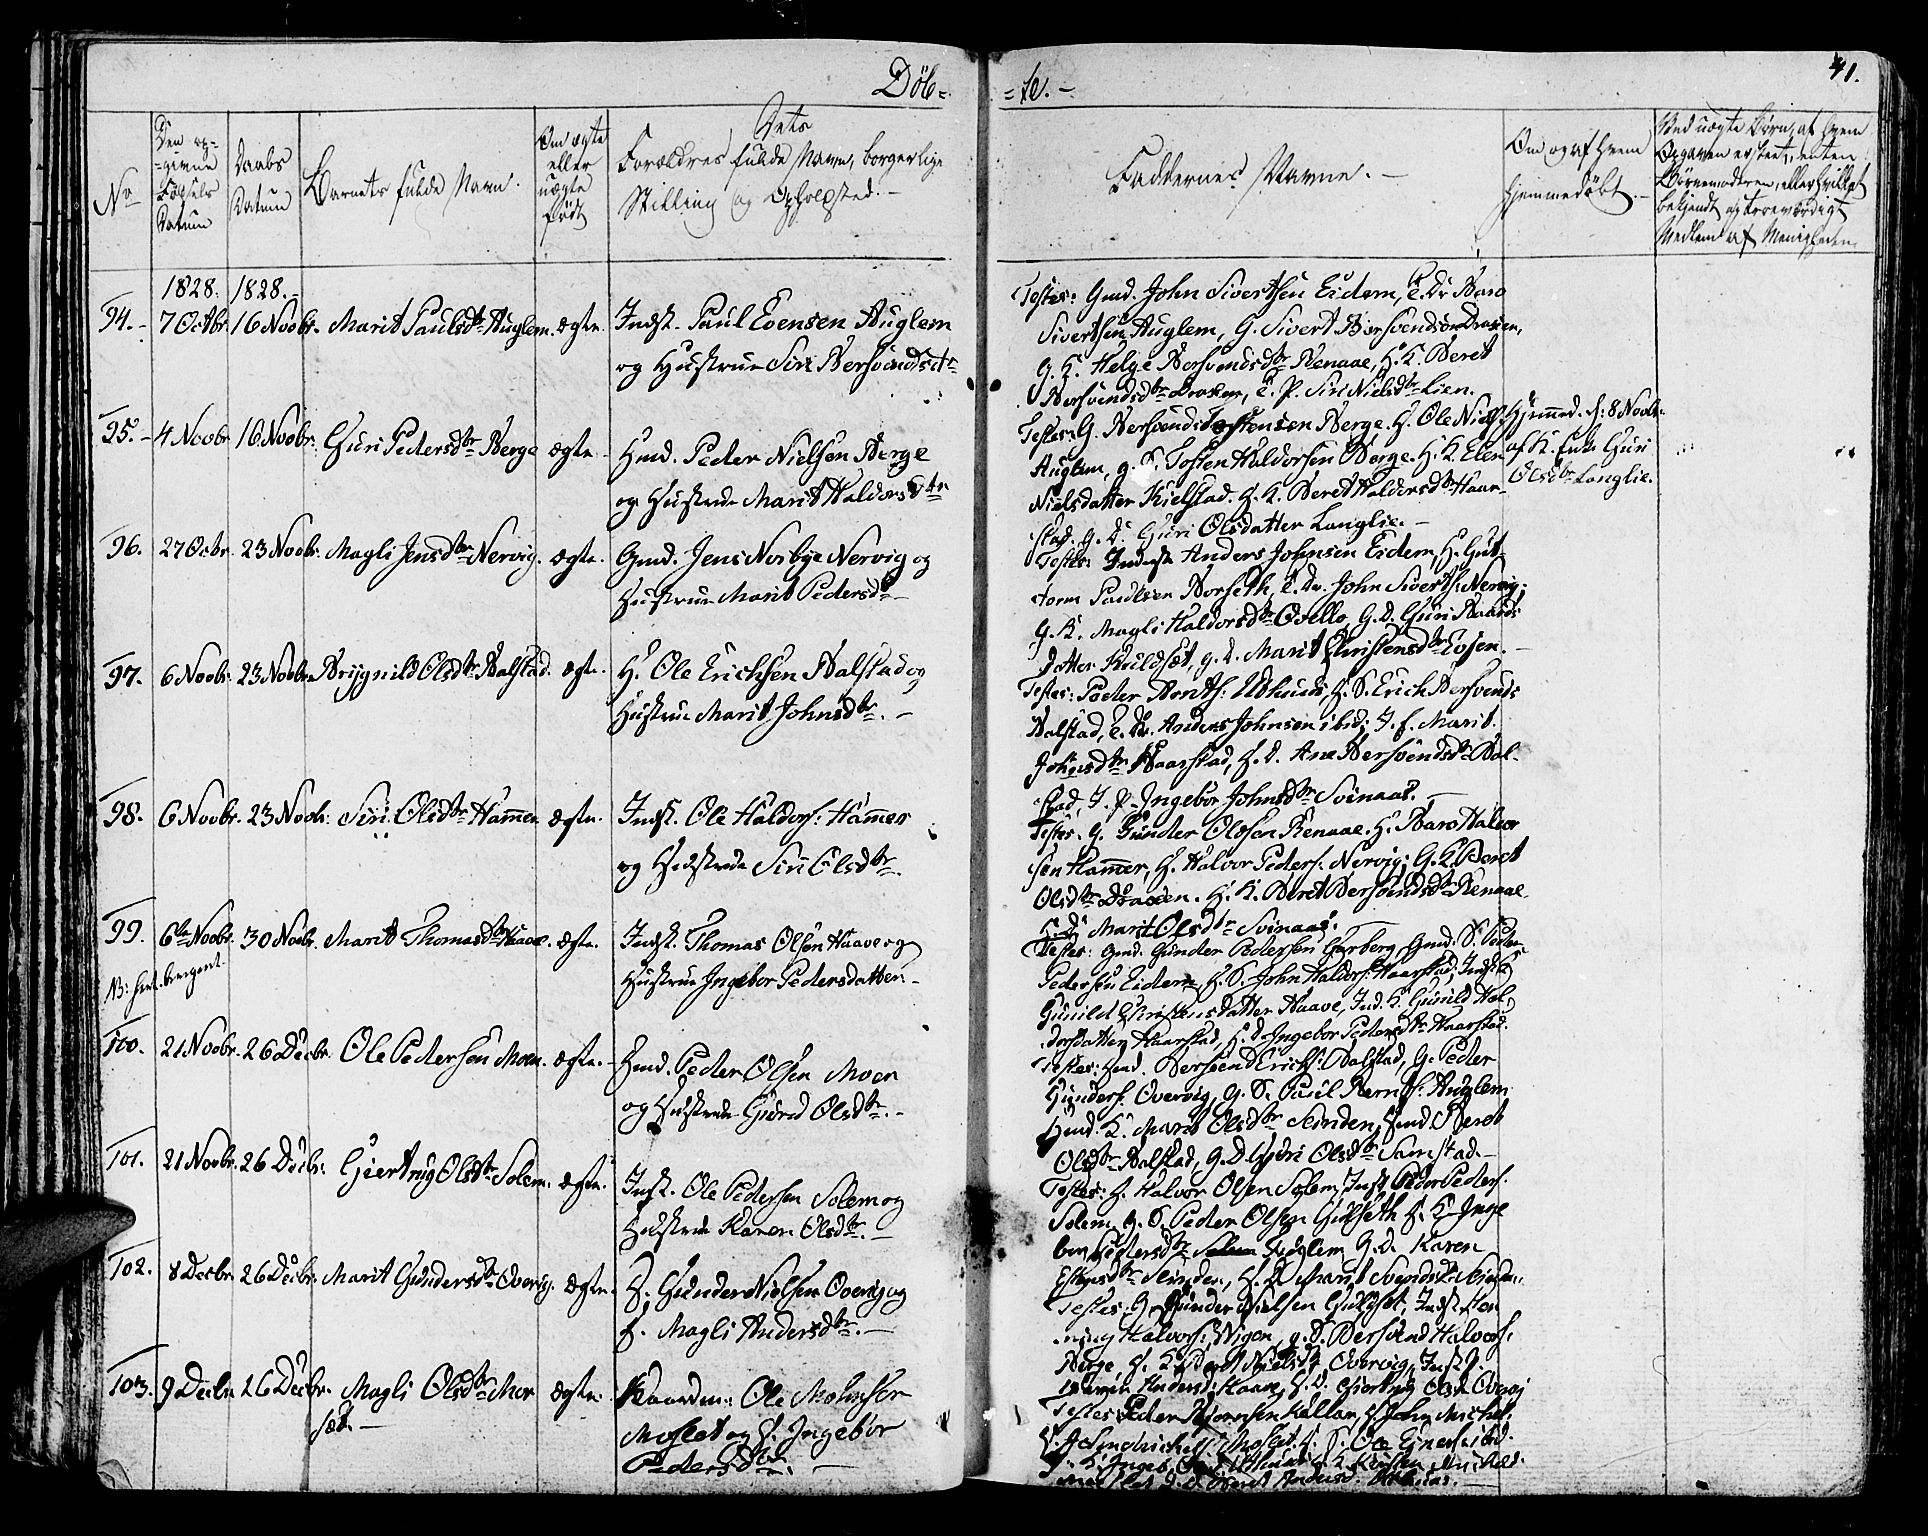 Døb- -te.-
41.
No
Den op-
-givne
Fødsels
Datum
Daabs
Datum
Barnets fulde Navn.
Om ægte
eller
uægte
født
Dets
Forældres fulde Navn, borgerlige
Stilling og Opholdsted.-
Faddernes Navne.-
Om og af hvem
hjemmedøbt.-
Ved uægte Børn, af hvem
Opgaven er skeet, enten
Børnemoderen, eller hvilket
bekjendt og troeværdigt
Medlem af Menigheden.
1828. 1828.-
94.- 7 Octbr. 16 Novbr. Marit Paulsdtr Auglem. ægte. Indst. Paul Evensen Auglem
og Hustrue Siri Bersvendsdtr
Testes: Gmd. John Sivertsen Eidem, E. Dr. Baro
Sivertsen Auglem, G. Sivert Bersvendsen Draxen,
G. K. Helge Bersvendsdtr Renaae, H. K. Beret
Bersvendsdtr Draxen, E. P. Siri Nielsdtr Lien.
95.- 4 Novbr. 16 Novbr. Guri Pedersdtr Berge ægte Hmd. Peder Nielsen Berge
og Hustrue Marit Haldorsdtr
Testes: G. Bersvend Tostensen Berge. H. Ole Niels.
Auglem, g. S. Tosten Haldorsen Berge. H. K. Elen
Nielsdatter Kielstad. H. K. Beret Haldorsdtr Haar-
stad. g. D. Guri Olsdatter Langlie.-
Hjemmed. d: 8 Novbr.
af K. Enke Guri
Olsdtr Langlie.
96. 27 Octr. 23 Novbr. Magli Jensdtr Nervig. ægte. Gmd. Jens Norbye Nervig og
Hustrue Marit Pedersdtr-
Testes: Inderst Anders Johnsen Eidem, H. Gut-
torm Paulsen Norseth, E. Dr. John Sivertss: Nervig;
G. K. Magli Haldorsdtr Qvello, G. D. Guri Baards
datter Kuldsæt, g. D. Marit Christensdtr Evjen.-
97. 6 Novbr. 23 Novbr. Brygnild Olsdtr Balstad. ægte. H. Ole Erichsen Balstad og
Hustrue Marit Johnsdtr.-
Testes: Peder Berntss: Uthuus, H. S. Erich Bersvends
Balstad, E. Dr. Anders Johnsen ibid; I. f. Marit
Johnsdtr Haarstad, H. D. Ane Bersvendsdtr Bal-
stad, I. P. Ingebor Johnsdtr Svinaas.-
98. 6 Novbr. 23 Novbr: Siri Olsdtr Hammer ægte. Indst. Ole Haldors: Hammer
og Hustrue Siri Olsdtr.
Testes. g. Gunder Olssen Renaae. H. Baro Halvor
sen Hammer, H. Halvor Peders: Nervig; G. K. Beret
Olsdtr Draxen. H. K. Beret Bersvendsdtr Renaae
H. D. Marit Olsdtr Svinaas.-
99. 6te Novbr. 30 Novbr. Marit Thomasdtr Haave. ægte. Indst. Thomas Olsen Haave og
Hustrue Ingebor Pedersdatter.-
Testes: Gmd. Gunder Pedersen Garberg, Gmd. S. Peder
Pedersen Eidem, H. S. John Haldors: Haarstad, Indst. K
Gunild Christensdatter Haave, Ind. K. Gunild Hal-
dorsdatter Haarstad, H. D. Ingebor Pedersdtr Haarstad.
100. 21 Novbr. 26 Decbr. Ole Pedersen Moen. ægte.- Hmd. Peder Olsen Moen
og Hustrue Gurid Olsdtr.-
Testes: Hmd. Bersvend Erichs: Balstad, G. Peder
Gunders: Overvig, g. S. Paul Berntss: Auglem
Hmd. K. Marit Olsdtr Slinden, Hmd Beret
Olsdtr Balstad, G. D. Guri Olsdtr Samstad.-
101. 21 Novbr. 26 Decbr: Giertrug Olsdtr Solem. ægte. Inst. Ole Pedersen Solem og
Hustrue Karen Olsdtr.-
Testes: H. Halvor Olsen Solem, Inst Peder Peders.
Solem, g. S. Peder Olsen Gulseth H. K. Inge
bor Pedersdtr Auglem G. D. Karen
Estensdtr Slinden, H. D. Marit Svendsdtr Slinden.
102. 8 Decbr. 26 Decbr. Marit Gundersdtr Overvig. ægte. H. Gunder Nielsen Overvig og
H. Magli Andersdtr.-
Testes: G. Gunder Nielsen Guldset, Indst. Hen
ning Halvors: Wigen, g. S. Bersvend Halvors:
Berge, H. K. Beret Nielsdtr Overvig, Inst
Anders: Haave, H. D. Giertrug Olsdtr Overvig
103. 9 Decbr. 26 Decbr. Magli Olsdtr Mo-
sæt.- ægte. Gaardm: Ole
Moslet og H. Ingebor
Pedersdtr.-
Testes: Peder Biørnsen Kallar, John Michel.
Moslet. g. S. Ole Einers: ibid.